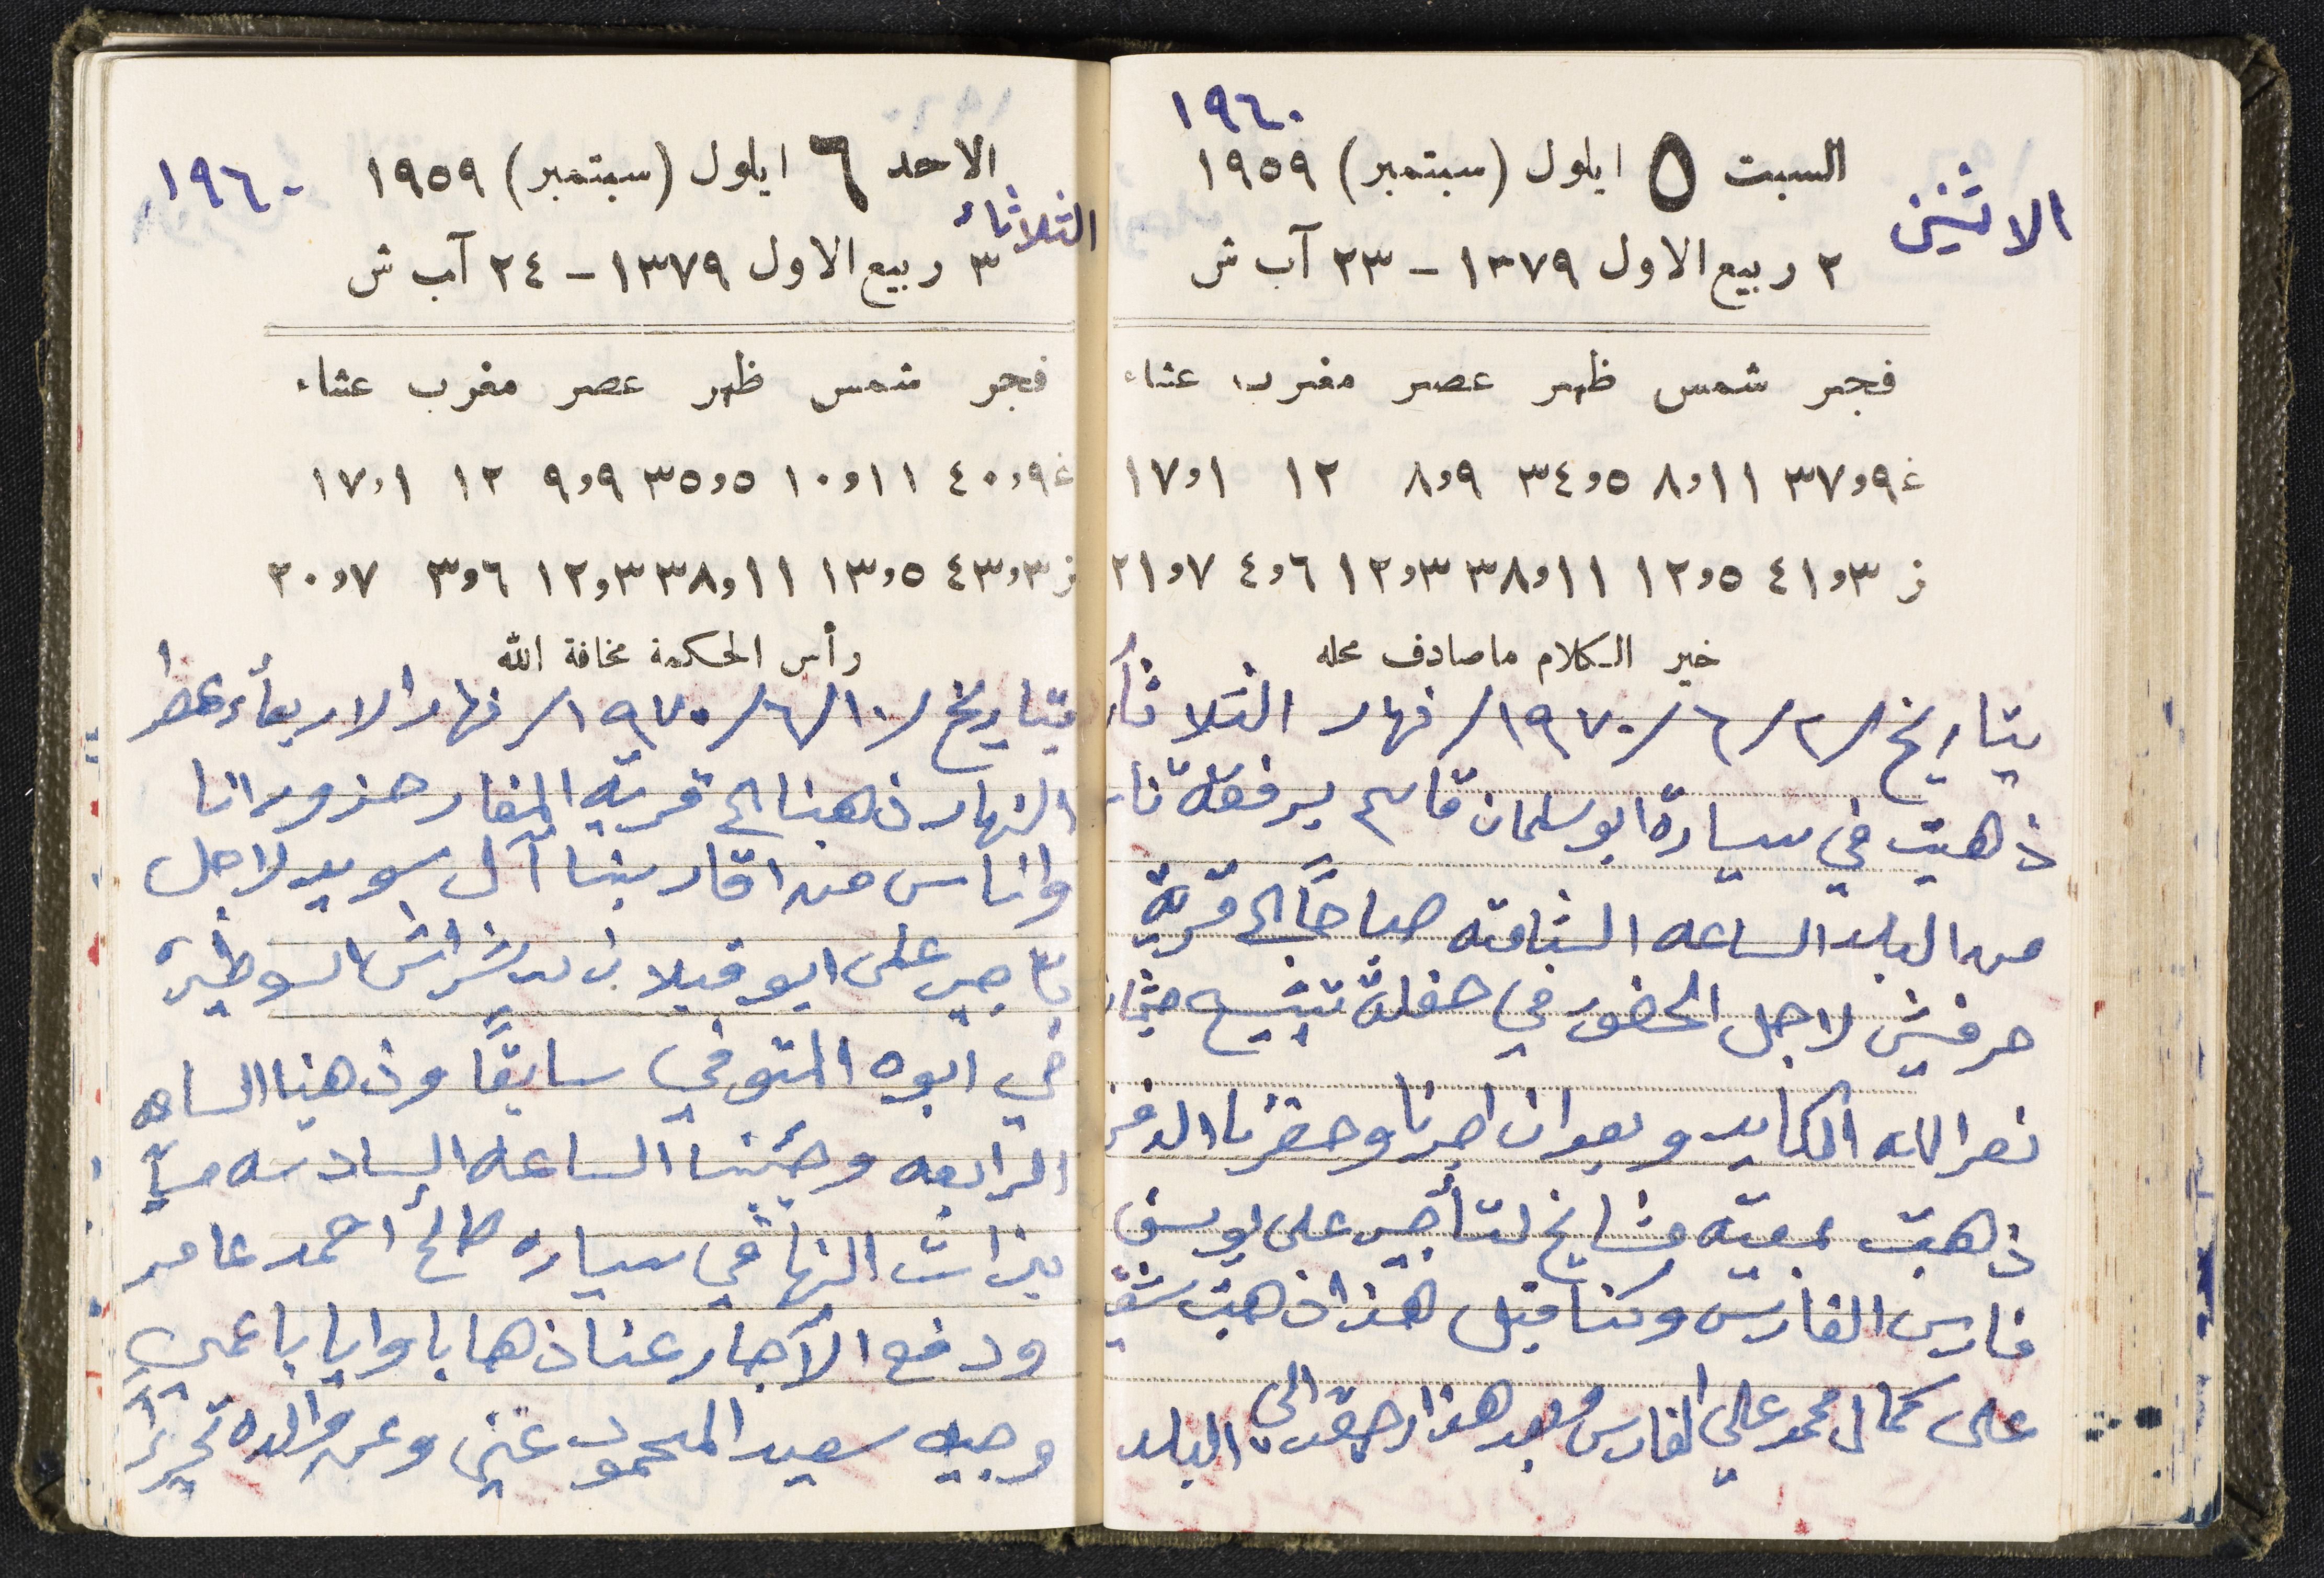 ١٩٦٠
السبت ٥ ايلول (سبتمبر) ١٩٥٩
الاثنين
٢ ربيع الاول ١٣٧٩ – ٢٣ آب ش
فجر شمس ظهر عصر مغرب عشاء
غ ٩و٣٧ ١١و٨ ٥و٣٤ ٩و٨ ١٢ ١و١٧
ز ٣و٤١ ٥و١٢ ١١و٣٨ ٣و١٢ ٦و٤ ٧و٢١
خير الكلام ماصادف محله
بتاريخ /٢/٦/١٩٧٠/ نهار الثلاثاء
ذهبت في سيارة ابو سلمان قاسم برفقة
من البلد الساعه الثامنه صباحاً الى قرية
حرفيش لاجل الحضور في حفلة تشيع جثمان
نصرالله الكايد وبعد ان اجرنا وحضرنا الدفن
ذهبت بمعية مشايخ لتأجير على يوسف
فارس الفارس وكنا قبل هذا ذهبت
على كمال محمد علي الفارس وبعد هذا رجعت الى البلد
الاحد ٦ ايلول (سبتمبر) ١٩٥٩
١٩٦٠
الثلاثاء
٣ ربيع الاول ١٣٧٩ – ٢٤ آب ش
فجر شمس ظهر عصر مغرب عشاء
غ ٩و٤٠ ١١و١٠ ٥و٣٥ ٩و٩ ١٢ ١و١٧
ز ٣و٤٣ ٥و١٣ ١١و٣٨ ٣و١٢ ٦و٣ ٧و٢٠
رأس الحكمة مخافة الله
بتاريخ /١٠/٦/١٩٧٠/ نهار الاربعاء
النهار ذهبنا الى قرية المغار حزور انا
واناس من اقاربنا آل سويد لاجل
تاجير على ابو
في ابوه المتوفي سابقاً وذهبنا الساعه
الرابعه وجئنا الساعه السادسه مساءً
بذات النهار في سياره صالح احمد عامر
ودفع الأجار عنا ذهابا وايابا عمي
وجيه سعيد المحمود عني وعن والده تحريراً